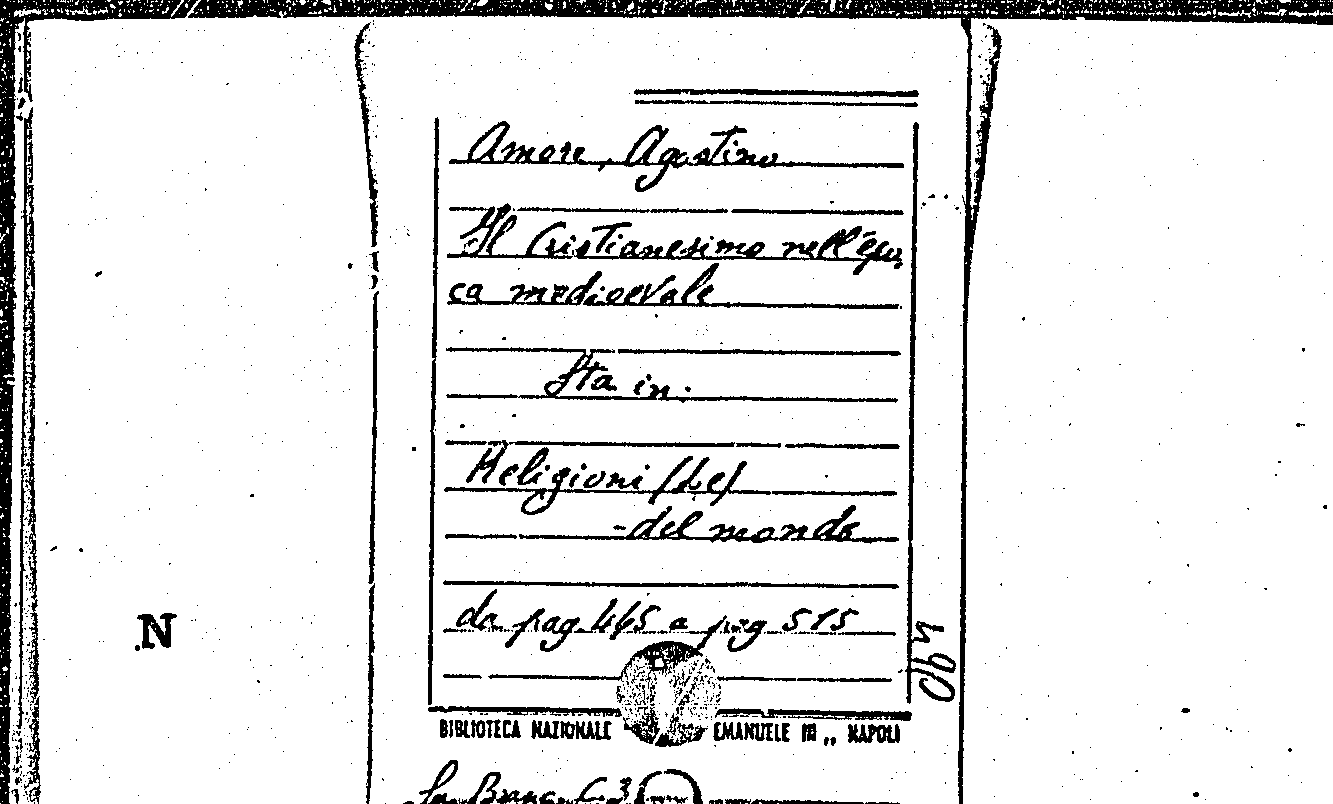 Amore, Agostino
Il Cristianesimo nell'epo-
ca medioevale
Sta in:
Religioni (Le)
- del mondo
da pag. 465 a pag 515
BIBLIOTECA NAZIONALE EMANUELE III ,, NAPOLI
N